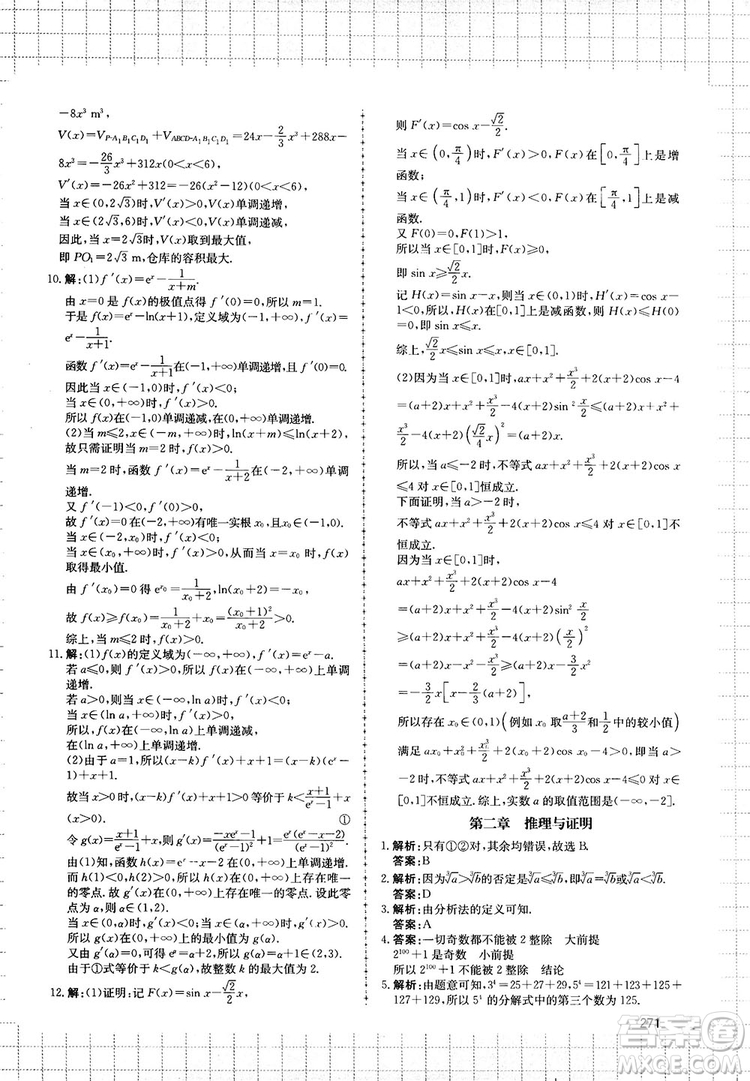 －8x³ m³，
V(x)=V_{P-A₁B₁C₁D₁}＋V_{ABCD-A₁B₁C₁D₁}=24x－\frac{2}{3}x³＋288x－
8x³=－\frac{26}{3}x³＋312x(0<x<6)，
V′(x)=－26x²＋312=－26(x²－12)(0<x<6)，
当 x∈(0,2√3)时，V′(x)>0，V(x)单调递增，
当 x∈(2√3,6)时，V′(x)<0，V(x)单调递减，
因此，当 x=2√3时，V(x)取到最大值，
即 PO₁=2√3 m，仓库的容积最大.
10. 解：(1)f′(x)=eˣ－\frac{1}{x+m}.
由 x=0是 f(x)的极值点得 f′(0)=0，所以 m=1.
于是 f(x)=eˣ－ln(x+1)，定义域为(－1，＋∞)，f′(x)=
eˣ－\frac{1}{x+1}.
函数 f′(x)=eˣ－\frac{1}{x+1}在(－1，＋∞)单调递增，且 f′(0)=0.
因此当 x∈(－1,0)时，f′(x)<0；
当 x∈(0，＋∞)时，f′(x)>0.
所以 f(x)在(－1,0)单调递减，在(0，＋∞)单调递增.
(2)当 m≤2，x∈(－m，＋∞)时，ln(x+m)≤ln(x+2)，
故只需证明当 m=2时，f(x)>0.
当 m=2时，函数 f′(x)=eˣ－\frac{1}{x+2}在(－2，＋∞)单调
递增.
又 f′(－1)<0，f′(0)>0，
故 f′(x)=0在(－2，＋∞)有唯一实根 x₀，且 x₀∈(－1,0).
当 x∈(－2，x₀)时，f′(x)<0；
当 x∈(x₀，＋∞)时，f′(x)>0，从而当 x=x₀时，f(x)
取得最小值.
由 f′(x₀)=0得 e^{x₀}=\frac{1}{x₀+2}，ln(x₀+2)=－x₀，
故 f(x)≥f(x₀)=\frac{1}{x₀+2}＋x₀=\frac{(x₀+1)²}{x₀+2}>0.
综上，当 m≤2时，f(x)>0.
11. 解：(1)f(x)的定义域为(－∞，＋∞)，f′(x)=eˣ－a.
若 a≤0，则 f′(x)>0，所以 f(x)在(－∞，＋∞)上单调
递增.
若 a>0，则当 x∈(－∞，ln a)时，f′(x)<0；
当 x∈(ln a，＋∞)时，f′(x)>0，
所以，f(x)在(－∞，ln a)上单调递减，
在(ln a，＋∞)上单调递增.
(2)由于 a=1，所以(x－k)f′(x)＋x＋1=(x－k)(eˣ－
1)＋x＋1.
故当 x>0时，(x－k)f′(x)＋x＋1>0等价于 k<\frac{x+1}{eˣ－1}＋x
(x>0).　①
令 g(x)=\frac{x+1}{eˣ－1}＋x，则 g′(x)=\frac{－xeˣ－1}{(eˣ－1)²}＋1=\frac{eˣ(eˣ－x－2)}{(eˣ－1)²}.
由(1)知，函数 h(x)=eˣ－x－2在(0，＋∞)上单调递增.
而 h(1)<0，h(2)>0，所以 h(x)在(0，＋∞)上存在唯一
的零点. 故 g′(x)在(0，＋∞)上存在唯一的零点. 设此零
点为α，则α∈(1,2).
当 x∈(0，α)时，g′(x)<0；当 x∈(α，＋∞)时，g′(x)>0，
所以 g(x)在(0，＋∞)上的最小值为 g(α).
又由 g′(α)=0，可得 e^α=α＋2，所以 g(α)=α＋1∈(2,3).
由于①式等价于 k<g(α)，故整数 k 的最大值为 2.
12. 解：(1)证明：记 F(x)=sin x－\frac{√2}{2}x，
则 F′(x)=cos x－\frac{√2}{2}.
当 x∈(0，\frac{π}{4})时，F′(x)>0，F(x)在[0，\frac{π}{4}]上是增
函数；
当 x∈(\frac{π}{4}，1)时，F′(x)<0，F(x)在[\frac{π}{4}，1]上是减
函数.
又 F(0)=0，F(1)>0，
所以当 x∈[0,1]时，F(x)≥0，
即 sin x≥\frac{√2}{2}x.
记 H(x)=sin x－x，则当 x∈(0,1)时，H′(x)=cos x－
1<0，所以，H(x)在[0,1]上是减函数，则 H(x)≤H(0)
=0，即 sin x≤x.
综上，\frac{√2}{2}x≤sin x≤x，x∈[0,1].
(2)因为当 x∈[0,1]时，ax＋x²＋\frac{x³}{2}＋2(x+2)cos x－4
=(a+2)x＋x²＋\frac{x³}{2}－4(x+2)sin²\frac{x}{2}
≤(a+2)x＋x²＋\frac{x³}{2}－4(x+2)(\frac{√2}{4}x)²
=(a+2)x.
所以，当 a≤－2时，不等式 ax＋x²＋\frac{x³}{2}＋2(x+2)cos
x≤4对 x∈[0,1]恒成立.
下面证明，当 a>－2时，
不等式 ax＋x²＋\frac{x³}{2}＋2(x+2)cos x≤4对 x∈[0,1]不
恒成立.
ax＋x²＋\frac{x³}{2}＋2(x+2)cos x－4
=(a+2)x＋x²＋\frac{x³}{2}－4(x+2)sin²\frac{x}{2}
≥(a+2)x＋x²＋\frac{x³}{2}－4(x+2)(\frac{x}{2})²
=(a+2)x－x²－\frac{x³}{2}
≥(a+2)x－\frac{3}{2}x²
=－\frac{3}{2}x[x－\frac{2}{3}(a+2)].
所以存在 x₀∈(0,1)(例如 x₀取\frac{a+2}{3}和\frac{1}{2}中的较小值)
满足 ax₀＋x₀²＋\frac{x₀³}{2}＋2(x₀+2)cos x₀－4>0，即当 a>
－2时，不等式 ax＋x²＋\frac{x³}{2}＋2(x+2)cos x－4≤0对 x∈
[0,1]不恒成立. 综上，实数 a 的取值范围是(－∞，－2].
第二章　推理与证明
1. 解析：只有①②对，其余均错误，故选 B.
答案：B
2. 解析：因为∛a>∛b的否定是∛a≤∛b，即∛a=∛b或∛a<∛b.
答案：D
3. 解析：由分析法的定义可知.
答案：A
4. 答案：一切奇数都不能被 2 整除　大前提
2¹⁰⁰＋1是奇数　小前提
所以 2¹⁰⁰＋1不能被 2 整除　结论
5. 解析：由题意可知，3⁴=25＋27＋29，5⁴=121＋123＋125＋
127＋129，所以 5⁴的分解式中的第三个数为 125.
271
答案卷
MXQE.COM